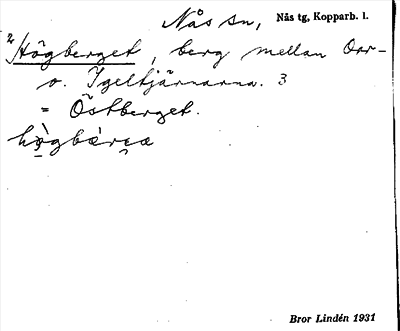 Nås sn, Nås tg, Kopparb. l.
2/ Högberget, berg mellan Orr-
o. Igeltjärnarna. 3
= Östberget.
Bror Lindén 1931